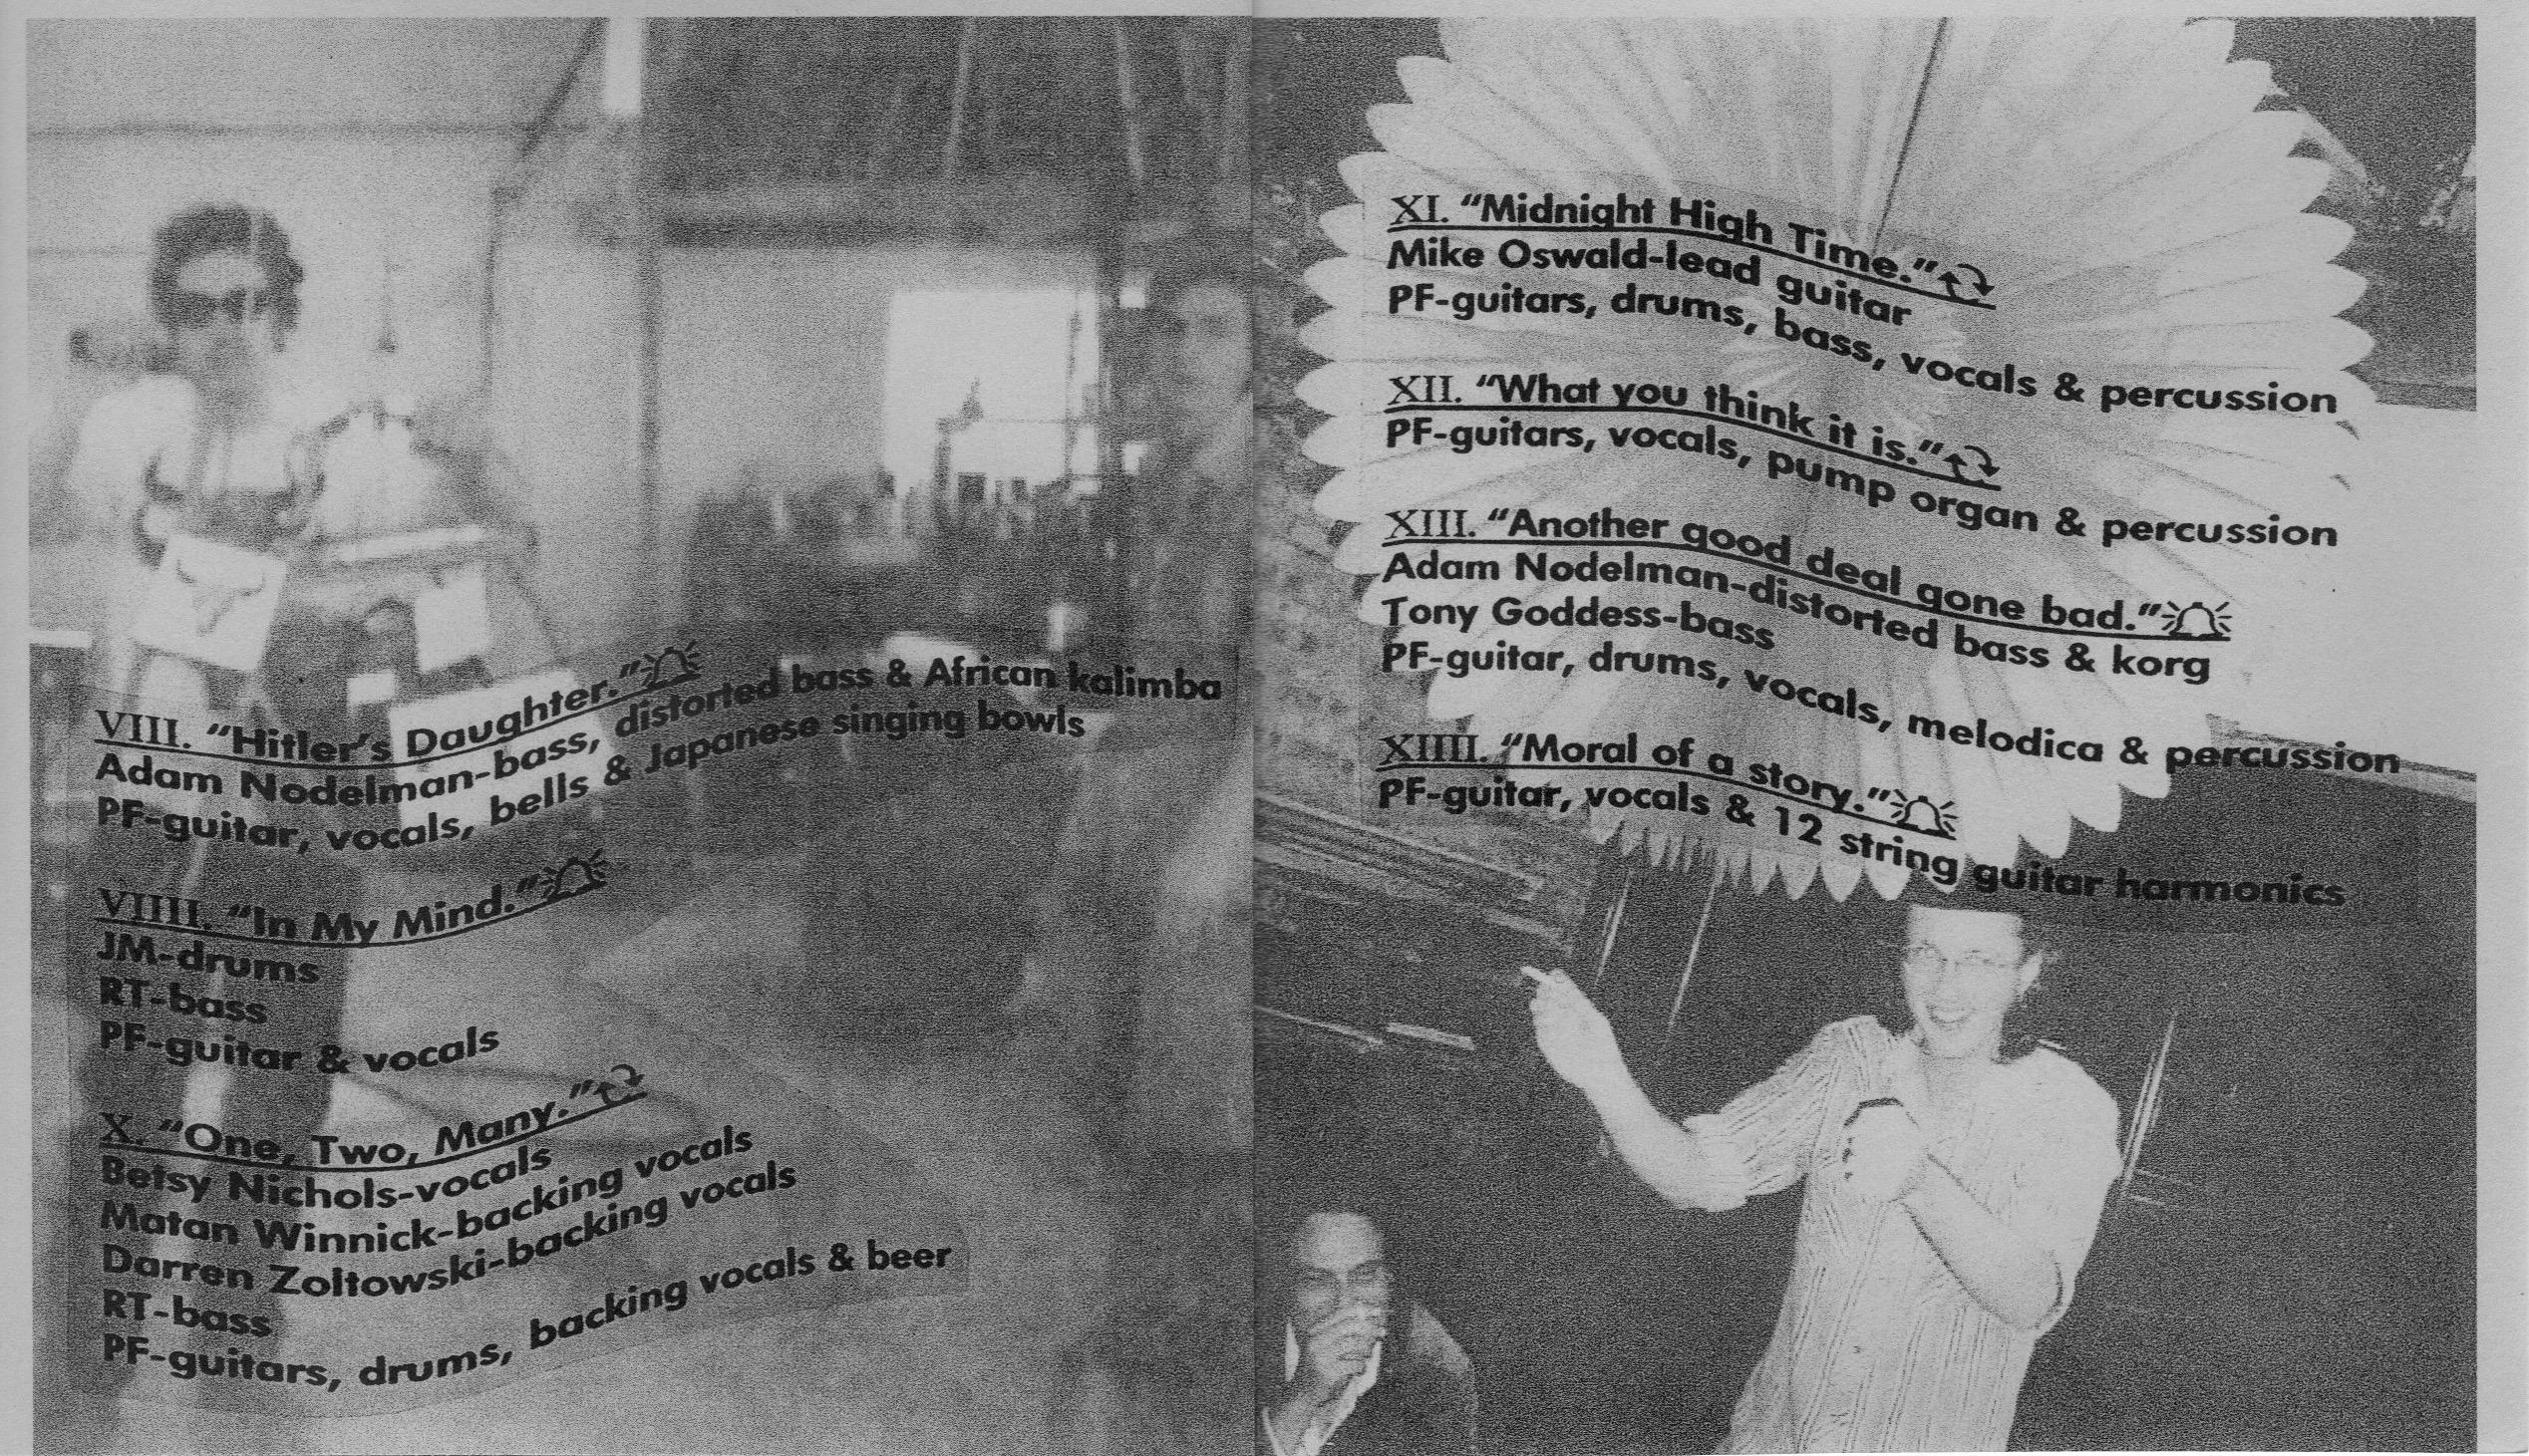 VIII. “Hitler's Daughter.”
Adam Nodelman-bass, distorted bass & African kalimba
PF-guitar, vocals, bells & Japanese singing bowls
VIIII. “In My Mind.”
JM-drums
RT-bass
PF-guitar & vocals
X. “One, Two, Many.”
Betsy Nichols-vocals
Matan Winnick-backing vocals
Darren Zoltowski-backing vocals
RT-bass
PF-guitars, drums, backing vocals & beer
XI. “Midnight High Time.”
Mike Oswald-lead guitar
PF-guitars, drums, bass, vocals & percussion
XII. “What you think it is.”
PF-guitars, vocals, pump organ & percussion
XIII. “Another good deal gone bad.”
Adam Nodelman-distorted bass & korg
Tony Goddess-bass
PF-guitar, drums, vocals, melodica & percussion
XIIII. “Moral of a story.”
PF-guitar, vocals & 12 string guitar harmonics